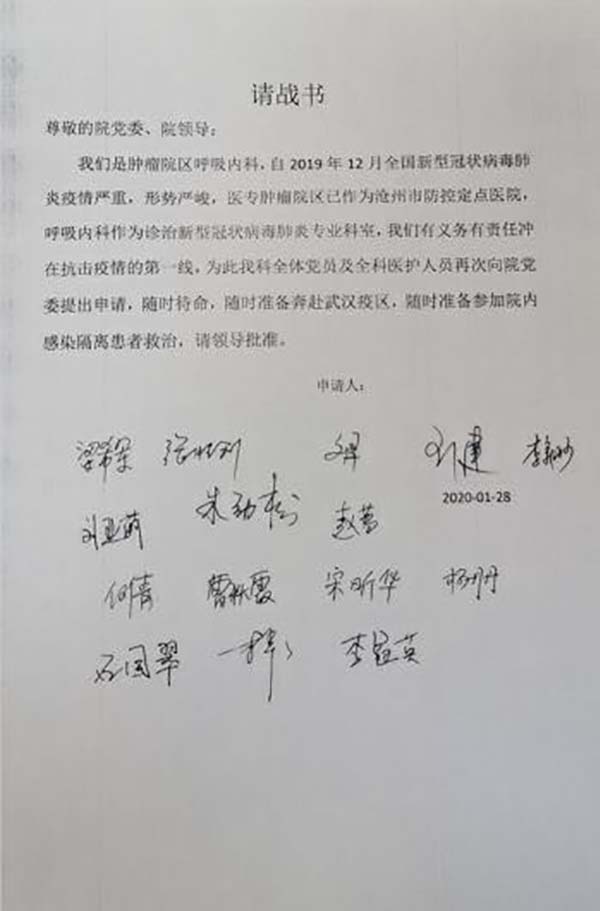 请战书
尊敬的院党委、院领导：
我们是肿瘤院区呼吸内科，自 2019 年 12 月全国新型冠状病毒肺
炎疫情严重，形势严峻，医专肿瘤院区已作为沧州市防控定点医院，
呼吸内科作为诊治新型冠状病毒肺炎专业科室，我们有义务有责任冲
在抗击疫情的第一线，为此我科全体党员及全科医护人员再次向院党
委提出申请，随时待命，随时准备奔赴武汉疫区，随时准备参加院内
感染隔离患者救治，请领导批准。
申请人：
刘建
2020-01-28
刘亚萌 朱劲松
何青 宋昕华 杨丹
石国翠